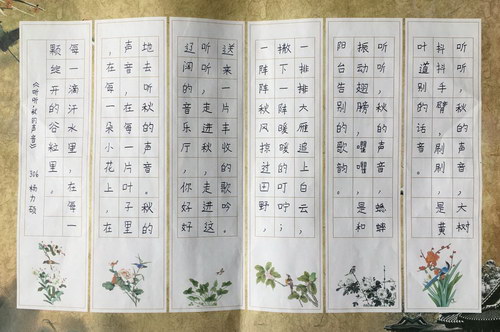 听听，秋的声音，大树
抖抖手臂，刷刷，是黄
叶道别的话音。
听听，秋的声音，蟋蟀
振动翅膀，嚁嚁，是和
阳台告别的歌韵。
一排排大雁追上白云，
撇下一阵暖暖的叮咛；
一阵阵秋风掠过田野，
送来一片丰收的歌吟。
听听，走进秋，走进这
辽阔的音乐厅，你好好
地去听秋的声音。秋的
声音，在每一片叶子里
，在每一朵小花上，在
每一滴汗水里，在每一
颗绽开的谷粒里。
306 杨力硕